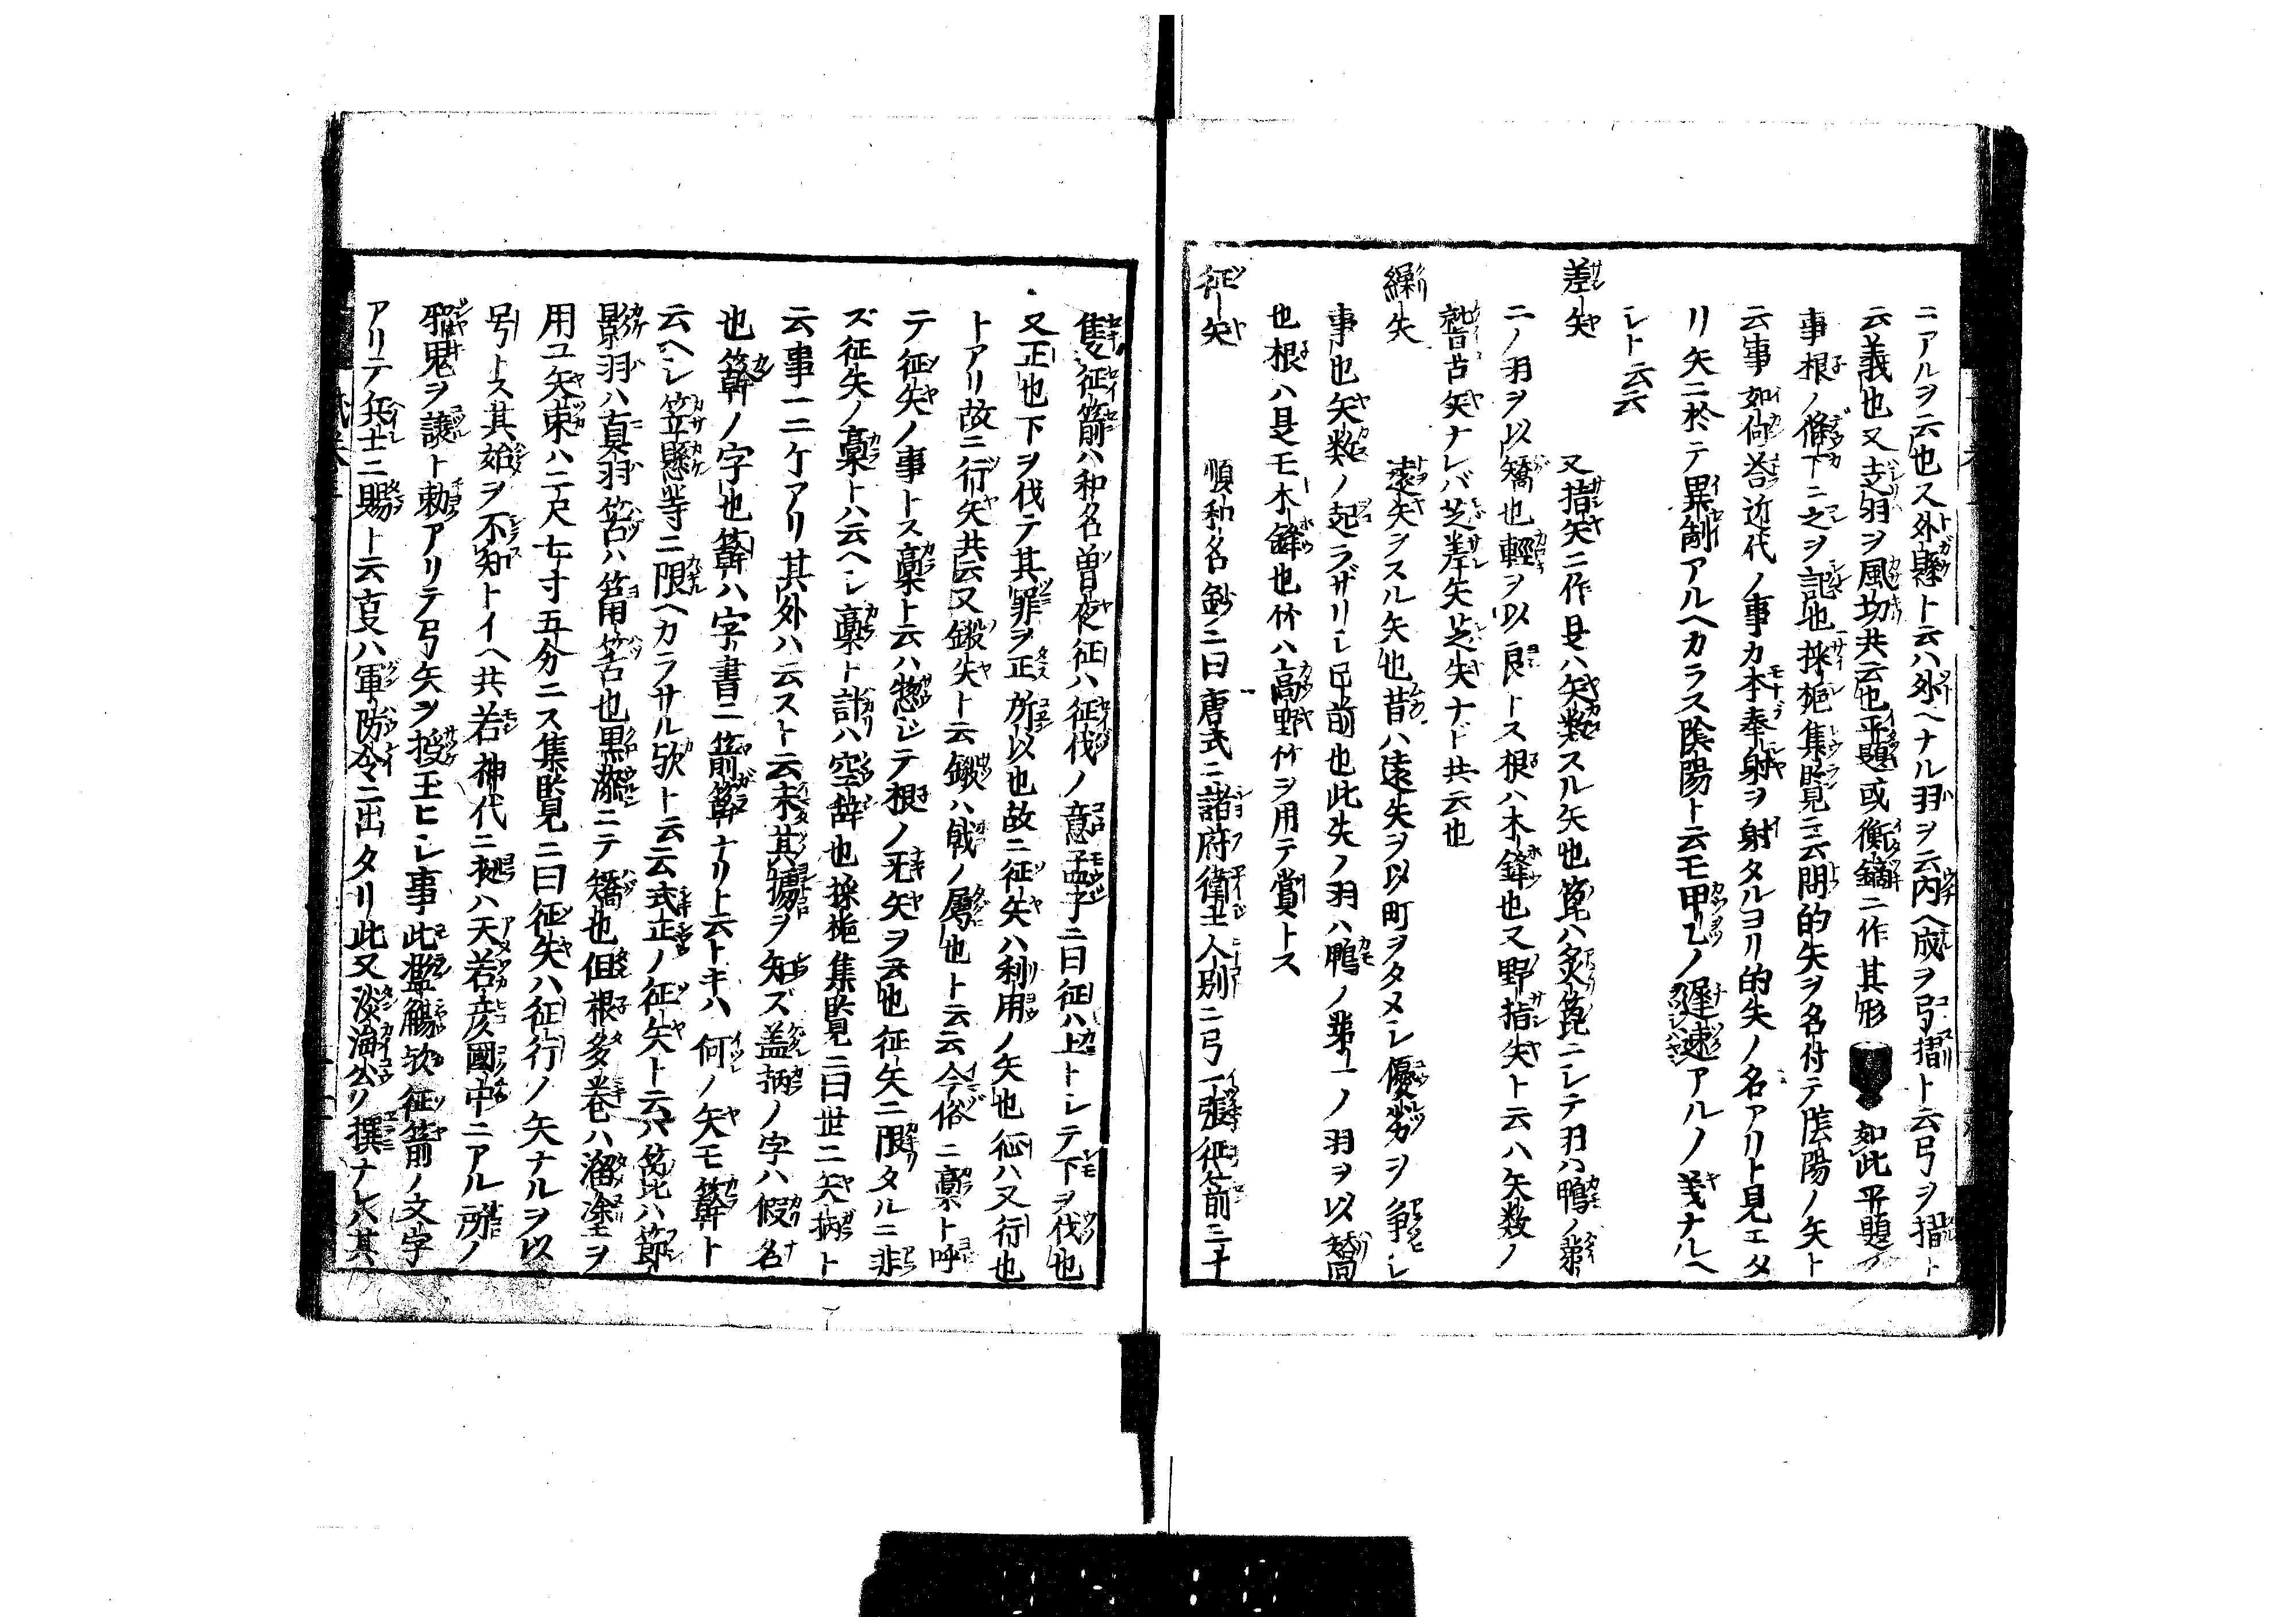 ニアルヲ云也ス外縣ト云ハ外ヘナル羽ヲ云内ヘ成ヲ弓摺ト云弓ヲ摺ト
云義也又走羽ヲ風切共云也平題或衡鏑ニ作其形 如此平題ノ
事根ノ條下ニ之ヲ記也採梔集覧ニ云問的矢ヲ名付テ陰陽ノ矢ト
云事如何荅近代ノ事カ本奉射ヲ射タルヨリ的矢ノ名アリト見エタ
リ矢ニ於テ異制アルヘカラス陰陽ト云モ甲乙ノ遅速アルノ義ナルヘ
シト云云
差矢 又指矢ニ作是ハ矢数スル矢也箆ハ炙箆ニシテ羽ハ鴨ノ第
二ノ羽ヲ以矯也輕ヲ以良トス根ハ木鋒也又野指矢ト云ハ矢数ノ
誓古矢ナレバ芝差矢芝矢ナド共云也
繰矢 遠矢ヲスル矢也昔ハ遠矢ヲ以町ヲタメシ優劣ヲ爭シ
事也矢数ノ起ラザリシ已前也此矢ノ羽ハ鴨ノ第一ノ羽ヲ以矯同
也根ハ是モ木鋒也竹ハ高野竹ヲ用テ賞トス
征矢 順和名鈔ニ曰唐式ニ諸府衛士人別ニ弓一張征箭三十
隻征箭ハ和名曽夜征ハ征伐ノ意孟子ニ曰征ハ上トシテ下ヲ伐也
又正也下ヲ伐テ其罪ヲ正所以也故ニ征矢ハ利用ノ矢也征ハ又行也
トアリ故ニ行矢共云又鏃矢ト云鏃ハ戟ノ属也ト云云今俗ニ藁ト呼
テ征矢ノ事トス藁ト云ハ惣ジテ根ノ无矢ヲ云也征矢ニ限タルニ非
ズ征矢ノ藁トハ云ヘシ藁ト計ハ空辞也採梔集覧ニ曰世ニ矢柄ト
云事一二ケアリ其外ハ云スト云未其據ヲ知ズ盖柄ノ字ハ假名
也簳ノ字也簳ハ字書ニ箭簳ナリト云トキハ何ノ矢モ簳ト
云ヘシ笠懸等ニ限ヘカラサル欤ト云云式正ノ征矢ト云ハ箆ハ節
影羽ハ真羽筈ハ筩筈也黒漆ニテ矯也但根多巻ハ溜塗ヲ
用ユ矢束ハ二尺七寸五分ニス集覧ニ曰征矢ハ征行ノ矢ナルヲ以
号トス其始ヲ不知トイヘ共若神代ニ據ハ天若彦國中ニアル所ノ
邪鬼ヲ譲ト勅アリテ弓矢ヲ授玉ヒシ事此濫觴欤征箭ノ文字
アリテ兵士ニ賜ト云支ハ軍防令ニ出タリ此又淡海公ノ撰ナレハ其